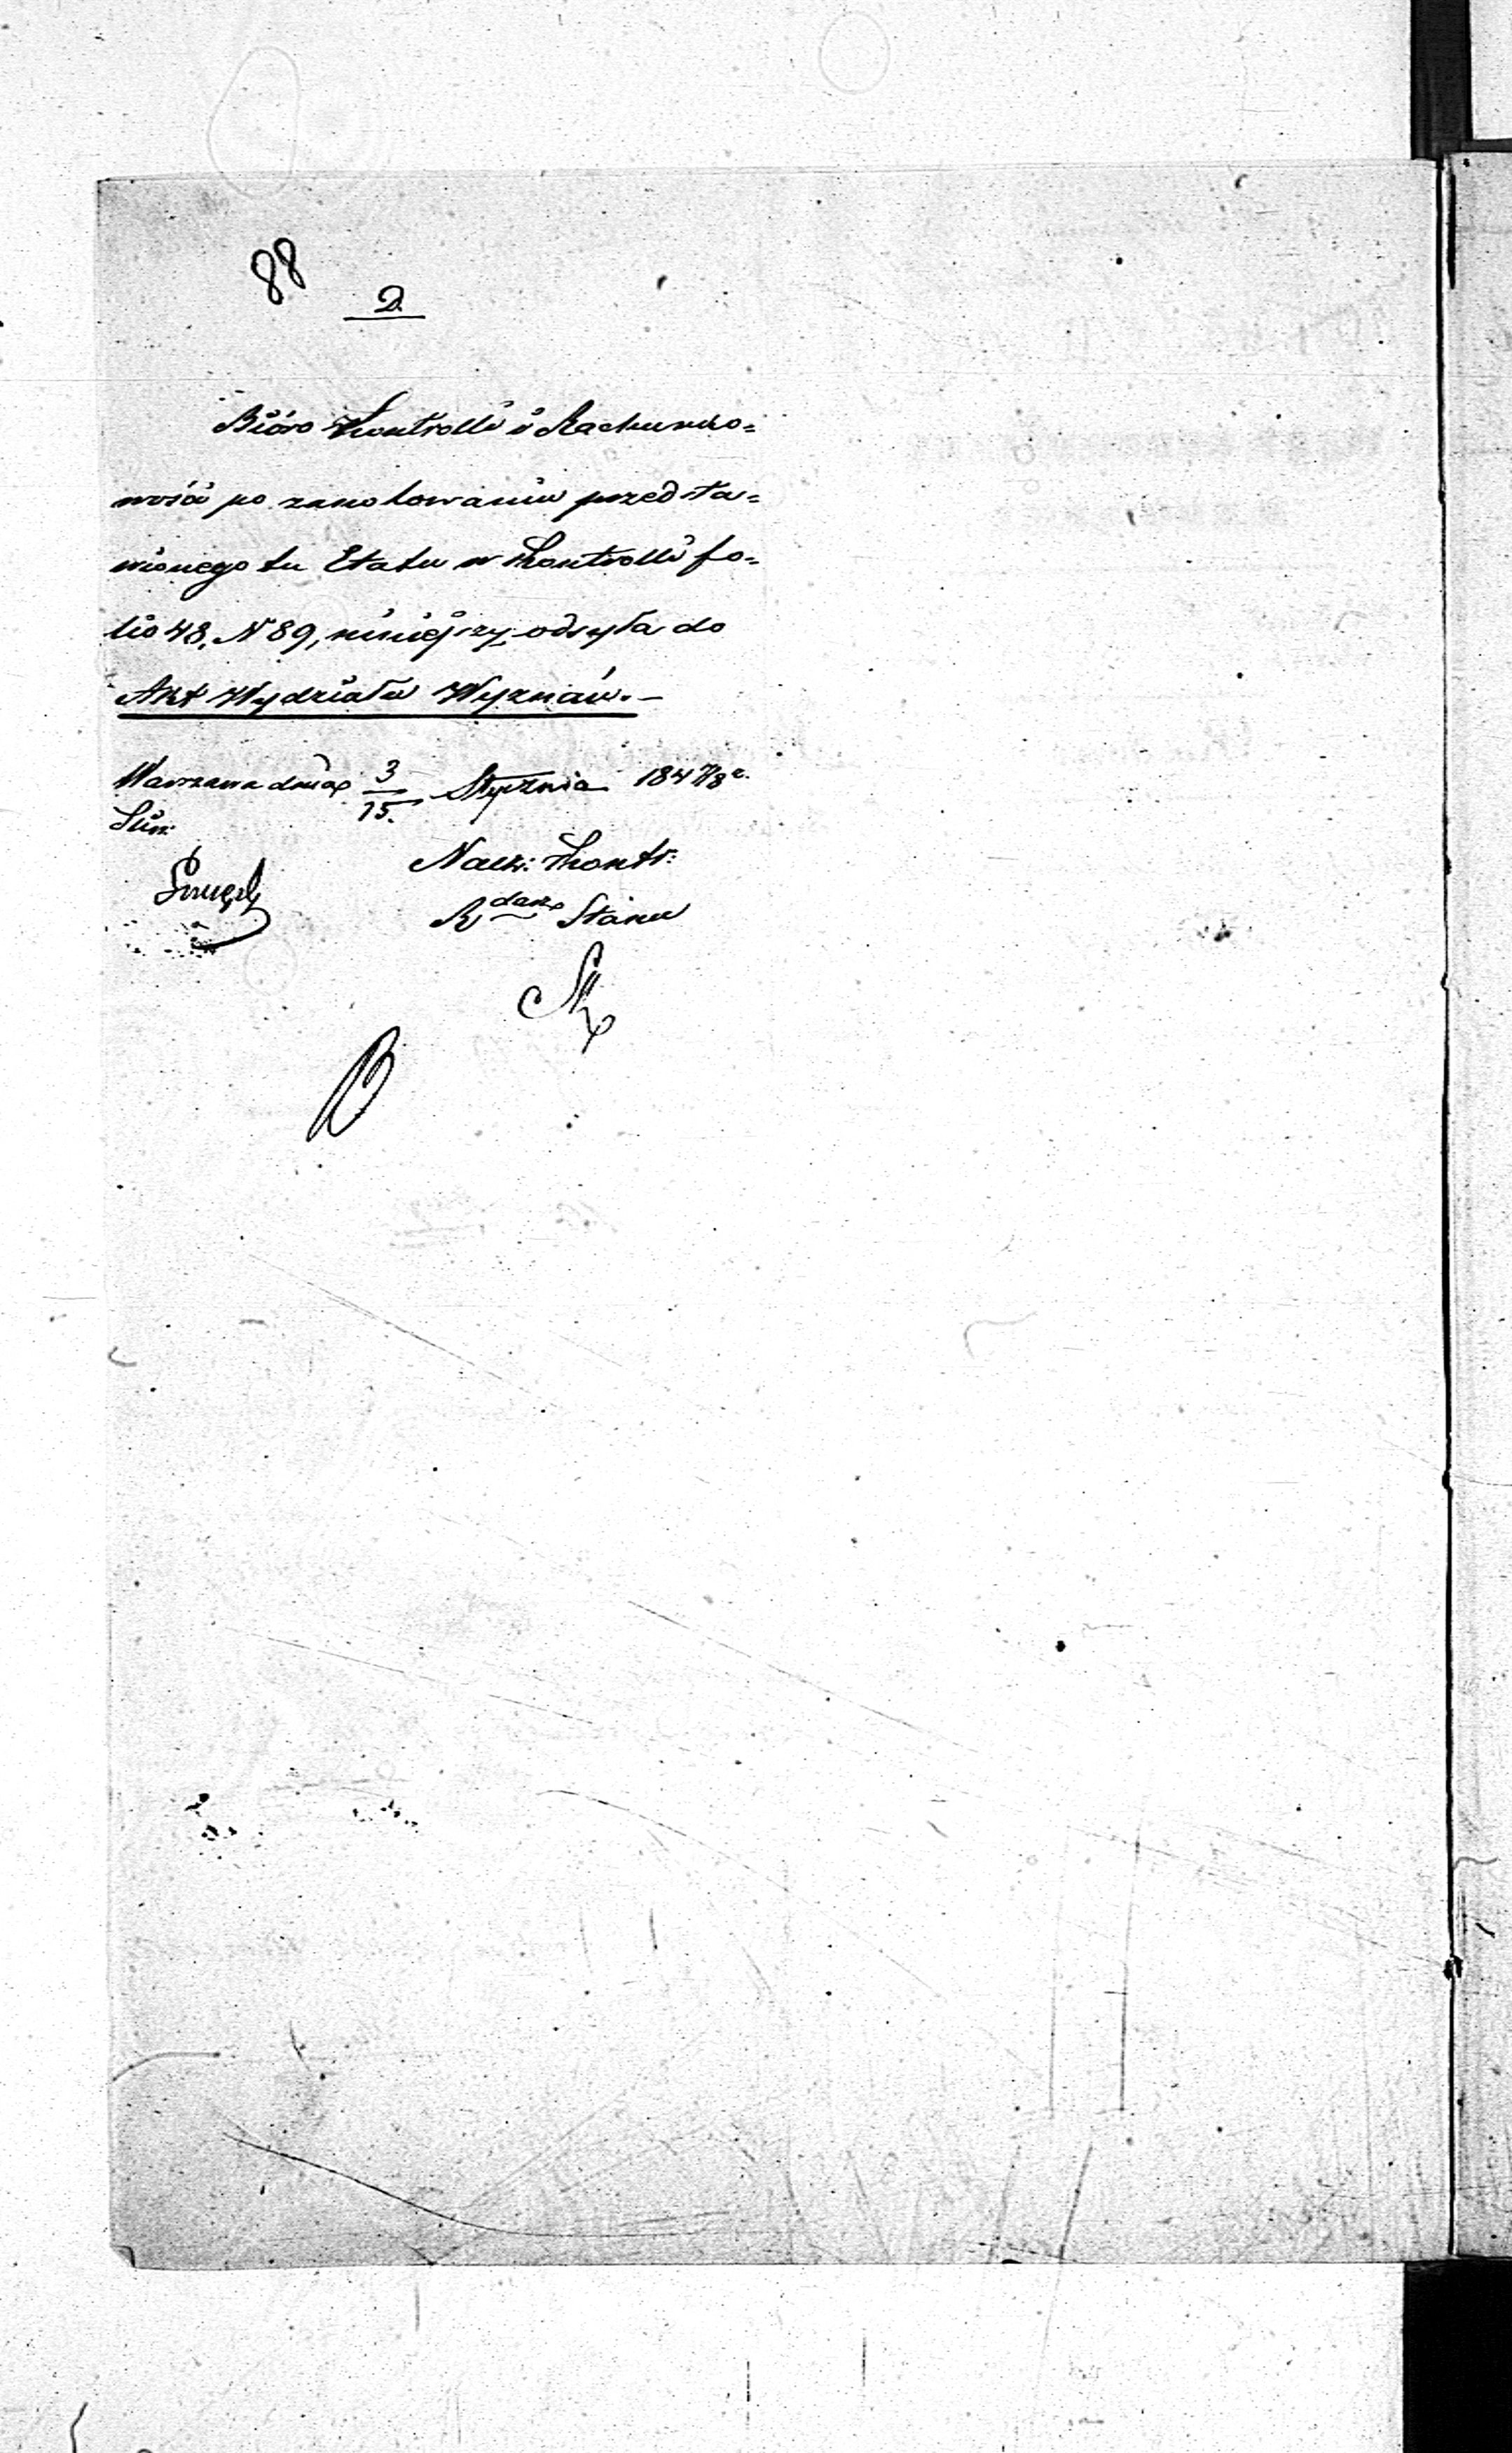 88
D.
Bióro Kontrolli i Rachunko=
wości po zanotowaniu przedsta=
wionego tu Etatu w Kontrolli fo=
lio 48, N 89, niniejszy odsyła do
Akt Wydziału Wyznań. –
Warszawa dnia 3/15 Stycznia 1847/8 r.
Nacz: Kontr:
R Stanu